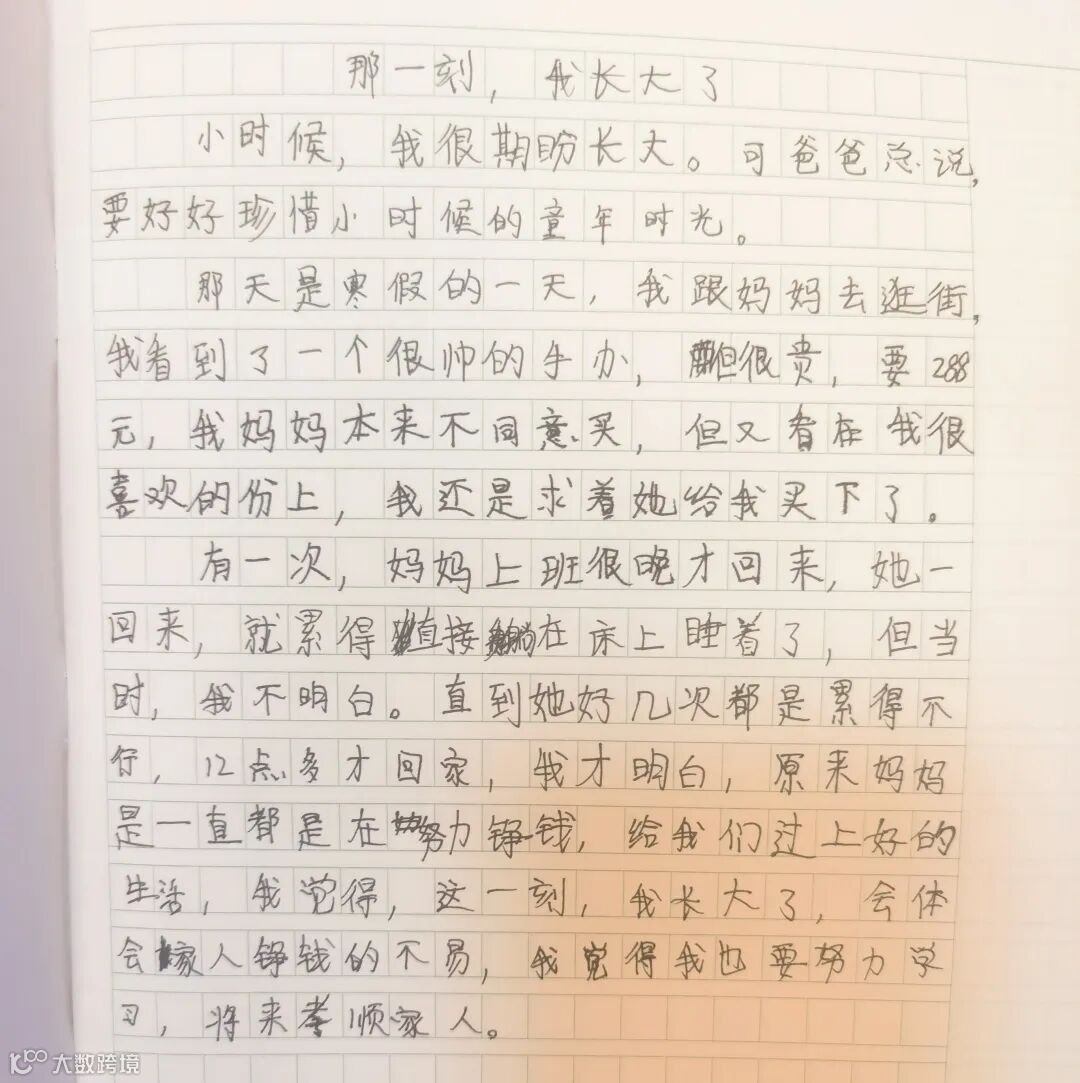 那一刻，我长大了
小时候，我很期盼长大。可爸爸总说，
要好好珍惜小时候的童年时光。
那天是寒假的一天，我跟妈妈去逛街，
我看到了一个很帅的手办，但很贵，要288
元，我妈妈本来不同意买，但又看在我很
喜欢的份上，我还是求着她给我买下了。
有一次，妈妈上班很晚才回来，她一
回来，就累得直接躺在床上睡着了，但当
时，我不明白。直到她好几次都是累得不
行，12点多才回家，我才明白，原来妈妈
是一直都是在努力铮钱，给我们过上好的
生活，我觉得，这一刻，我长大了，会体
会家人铮钱的不易，我觉得我也要努力学
习，将来孝顺家人。
大数跨境